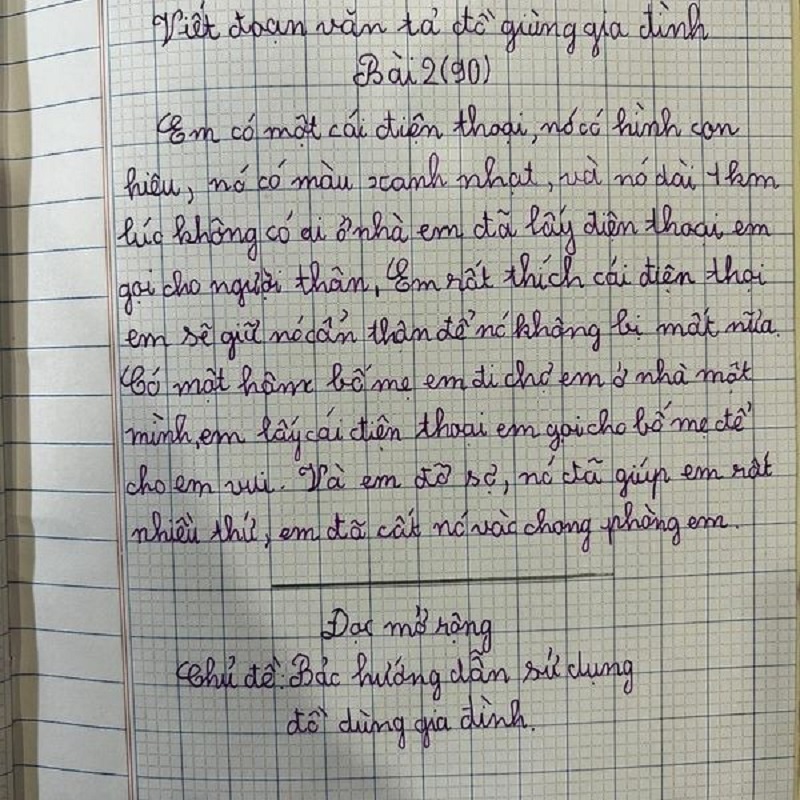 Viết đoạn văn tả đồ giùng gia đình
Bài 2 (90)
Em có một cái điện thoại, nó có hình con
hiêu, nó có màu xanh nhạt, và nó dài 1km
lúc không có ai ở nhà em đã lấy điện thoại em
gọi cho người thân, Em rất thích cái điện thọi
em sẽ giữ nó cẩn thận để nó không bị mất nữa.
Có một hôm bố mẹ em đi chợ em ở nhà một
mình, em lấy cái điện thoại em gọi cho bố mẹ để
cho em vui. Và em đỡ sợ, nó đã giúp em rất
nhiều thứ, em đã cất nó vào chong phòng em.
Đọc mở rộng
Chủ đề: Bác hướng dẫn sử dụng
đồ dùng gia đình.